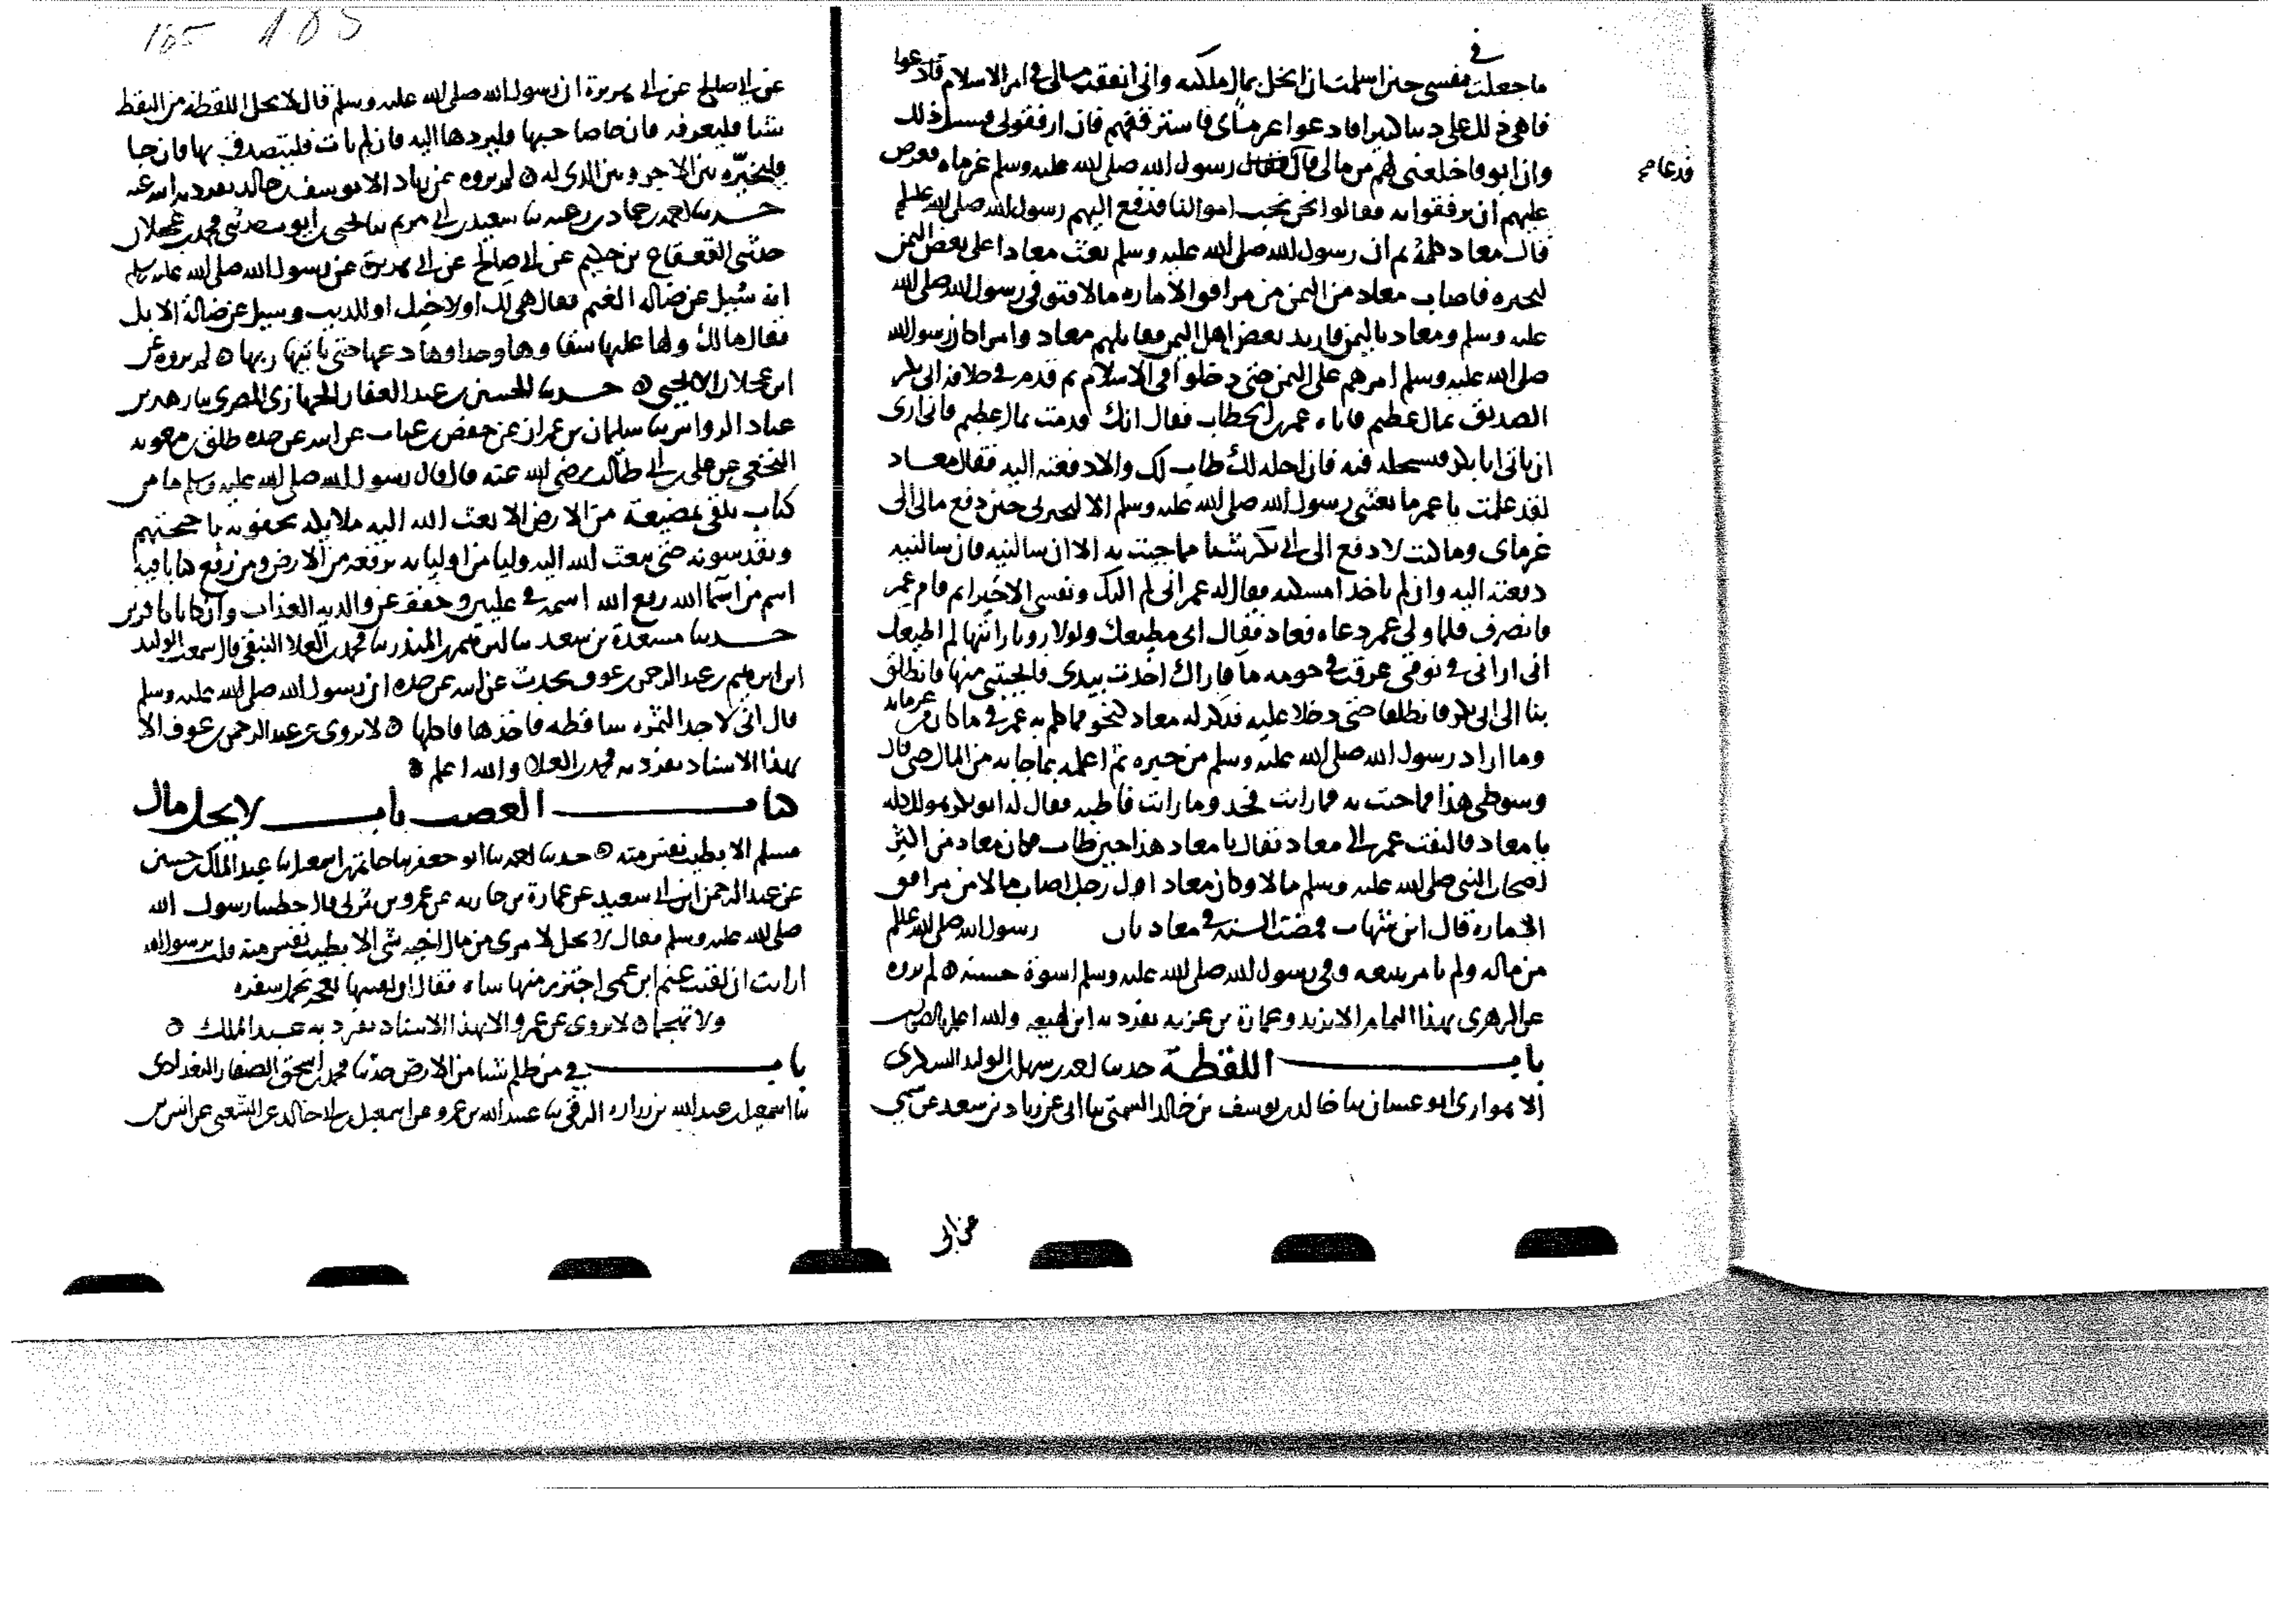 في
ما جعلت نفسي حين اسلمت ان ابخل بمال ملكته واني انفقت مالي في امر الاسلام فادعوا
فدعا صح
وان ابوا فاخلعني لهم من مالي قال فقال رسول الله صلى الله عليه وسلم غرماه فعرض
عليهم ان يرفقوا به فقالوا نحن نحب اموالنا فدفع اليهم رسول الله صلى الله عليه وسلم
قال معاد كله ثم ان رسول الله صلى الله عليه وسلم بعث معادا على بعض اليمن
ليجبره فاصاب معاد من اليمن من مرافق الاماره مالا فتوفي رسول الله صلى الله
عليه وسلم ومعاد باليمن فارتد بعض اهل اليمن فقاتلهم معاد وامرا كان رسول الله
صلى الله عليه وسلم امرهم على اليمن حتى دخلوا في الاسلام ثم قدم في خلافه ابي بكر
الصديق بمال عظيم فاتاه عمر بن الخطاب فقال انك قدمت بمال عظيم فاني ارى
ان تاتي ابا بكر فتستحله منه فان احله لك طاب لك والا دفعته اليه فقال معاد
لقد علمت يا عمر ما بعثني رسول الله صلى الله عليه وسلم الا ليجبرني حين دفع مالي الى
غرماي وما كنت لادفع الى ابي بكر شيا مما جيت به الا ان سالنيه فان سالنيه
دفعته اليه وان لم ياخذ امسكته فقال له عمر اني لم الك ونفسي الا خيرا ثم قام عمر
فانصرف فلما ولى عمر دعاه فعاد فقال اني مطيعك ولولا رويا رايتها لم اطيعك
اني اراني في نومي غرقت في حومه ما فاراك اخذت بيدي فانجيتني منها فانطلق
بنا الى ابي بكر فانطلقا حتى دخلا عليه فذكر له معاد كنحو مما كلم به عمر في ما كان من غرمايه
وما اراد رسول الله صلى الله عليه وسلم من جبره ثم اعلمه بما جا به من المال حتى قال
وسوطي هذا مما جيت به فما رايت فخذ وما رايت فاطبه فقال له ابو بكر هو لك كله
يا معاد فالتفت عمر الى معاد فقال يا معاد هذا حين طاب فكان معاد من اكثر
اصحاب النبي صلى الله عليه وسلم مالا وكان معاد اول رجل اصاب مالا من مرافق
الاماره قال ابن شهاب فمضت السنه في معاد بان رسول الله صلى الله عليه وسلم
من ماله ولم يامر ببيعه وفي رسول الله صلى الله عليه وسلم اسوة حسنة ٥ لم يروه
عن الزهري بهذا التمام الا يزيد وعمارة بن غزيه تفرد به ابن لهيعه والله اعلم بالصواب
باب اللقطة حدثنا احمد بن سهل بن الوليد السكري
الاهوازي ابو غسان ثنا خالد بن يوسف بن خالد السمتي ثنا ابي عن زياد بن سعد عن سمي
عن ابي
185 185
عن ابي صالح عن ابي هريرة ان رسول الله صلى الله عليه وسلم قال لا تحل اللقطة من التقط
شيا فليعرفه فان جا صاحبها فليردها اليه فان لم يات فليتصدق بها فان جا
فليخيّره بين الاجر وبين الذي له ٥ لم يروه عن زياد الا يوسف بن خالد تفرد به ابنه عنه
حدثنا احمد بن حماد بن زغبه ثنا سعيد بن ابي مريم ثنا يحيى بن ايوب حدثني محمد بن عجلان
حدثني القعقاع بن حكيم عن ابي صالح عن ابي هريرة عن رسول الله صلى الله عليه وسلم
انه سُيل عن ضاله الغنم فقال هي لك او لاخيك او للديب وسيل عن ضالة الابل
فقال مالك ولها عليها سقاوها وحداوها دعها حتى ياتيها ربها ٥ لم يروه عن
ابن عجلان الا يحيى ٥ حدثنا الحسين بن عبد الغفار المصري ثنا زهير بن
عباد الرواسي ثنا سليمان بن عمران عن حفص بن غياث عن ابيه عن جده طلق بن معويه
النخعي عن علي بن ابي طالب رضي الله عنه قال قال رسول الله صلى الله عليه وسلم ما من
كتاب يلقى بمضيعة من الارض الا بعث الله اليه ملايكه يحفونه باجنحتهم
ويقدسونه حتى يبعث الله اليه وليا من اوليايه يرفعه من الارض ومن رفع كتابا فيه
اسم من اسما الله رفع الله اسمه في عليين وخفف عن والديه العذاب وان كانا كافرين
حدثنا مسعدة بن سعد ثنا ابراهيم بن المنذر ثنا محمد بن العلا الثقفي قال سمعت الوليد
ابن ابراهيم بن عبد الرحمن بن عوف يحدث عن ابيه عن جده ان رسول الله صلى الله عليه وسلم
قال اني لاجد التمره ساقطه فاخذها فاكلها ٥ لا يروى عن عبد الرحمن بن عوف الا
بهذا الاسناد تفرد به محمد بن العلا والله اعلم ٥
كتاب الغصب باب لا يحل مال
مسلم الا بطيب نفس منه ٥ حدثنا احمد ثنا ابو جعفر ثنا حاتم بن اسمعيل ثنا عبد الملك بن حسين
عن عبد الرحمن ابن ابي سعيد عن عمارة بن حارثه عن عمرو بن يثربي قال خطبنا رسول الله
صلى الله عليه وسلم فقال لا يحل لامرى من مال اخيه شي الا بطيب نفس منه قلت يرسول الله
ارايت ان لقيت غنم ابن عمي اجتزر منها شاه فقال ان لقيتها نعجة تحمل شفره
ولا تهجها ٥ لا يروى عن عمرو الا بهذا الاسناد تفرد به عبد الملك ٥
باب في من ظلم شيا من الارض حدثنا محمد بن اسحق الصفار البغدادي
ثنا اسمعيل بن عبد الله بن زراره الرقي ثنا عبيد الله بن عمرو عن اسمعيل بن ابي خالد عن الشعبي عن انس بن